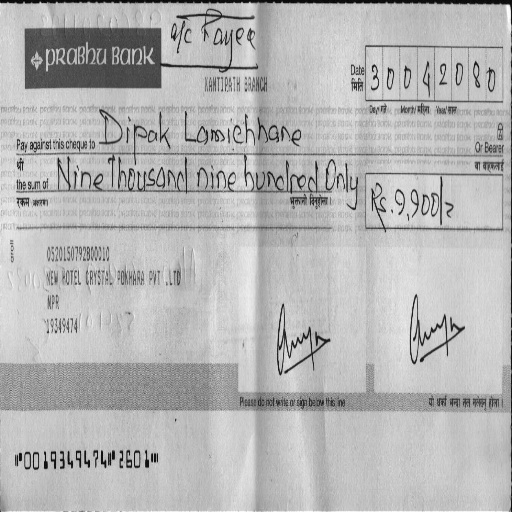 A/C Payee
PRABHU BANK
KANTIPATH BRANCH
Date 30042080
मिति
Day/गते Month/महिना Year/साल
Pay against this cheque to Dipak Lamichhane Or Bearer
श्री वा वाहकलाई
the sum of Nine Thousand nine hundred Only Rs. 9,900/-
रकम (अक्षरमा) भुक्तानी दिनुहोला
0520150792800010
NEW HOTEL CRYSTAL POKHARA PVT .LTD
NPR
19349474
Please do not write or sign below this line
⑈0019349474⑈2601⑈